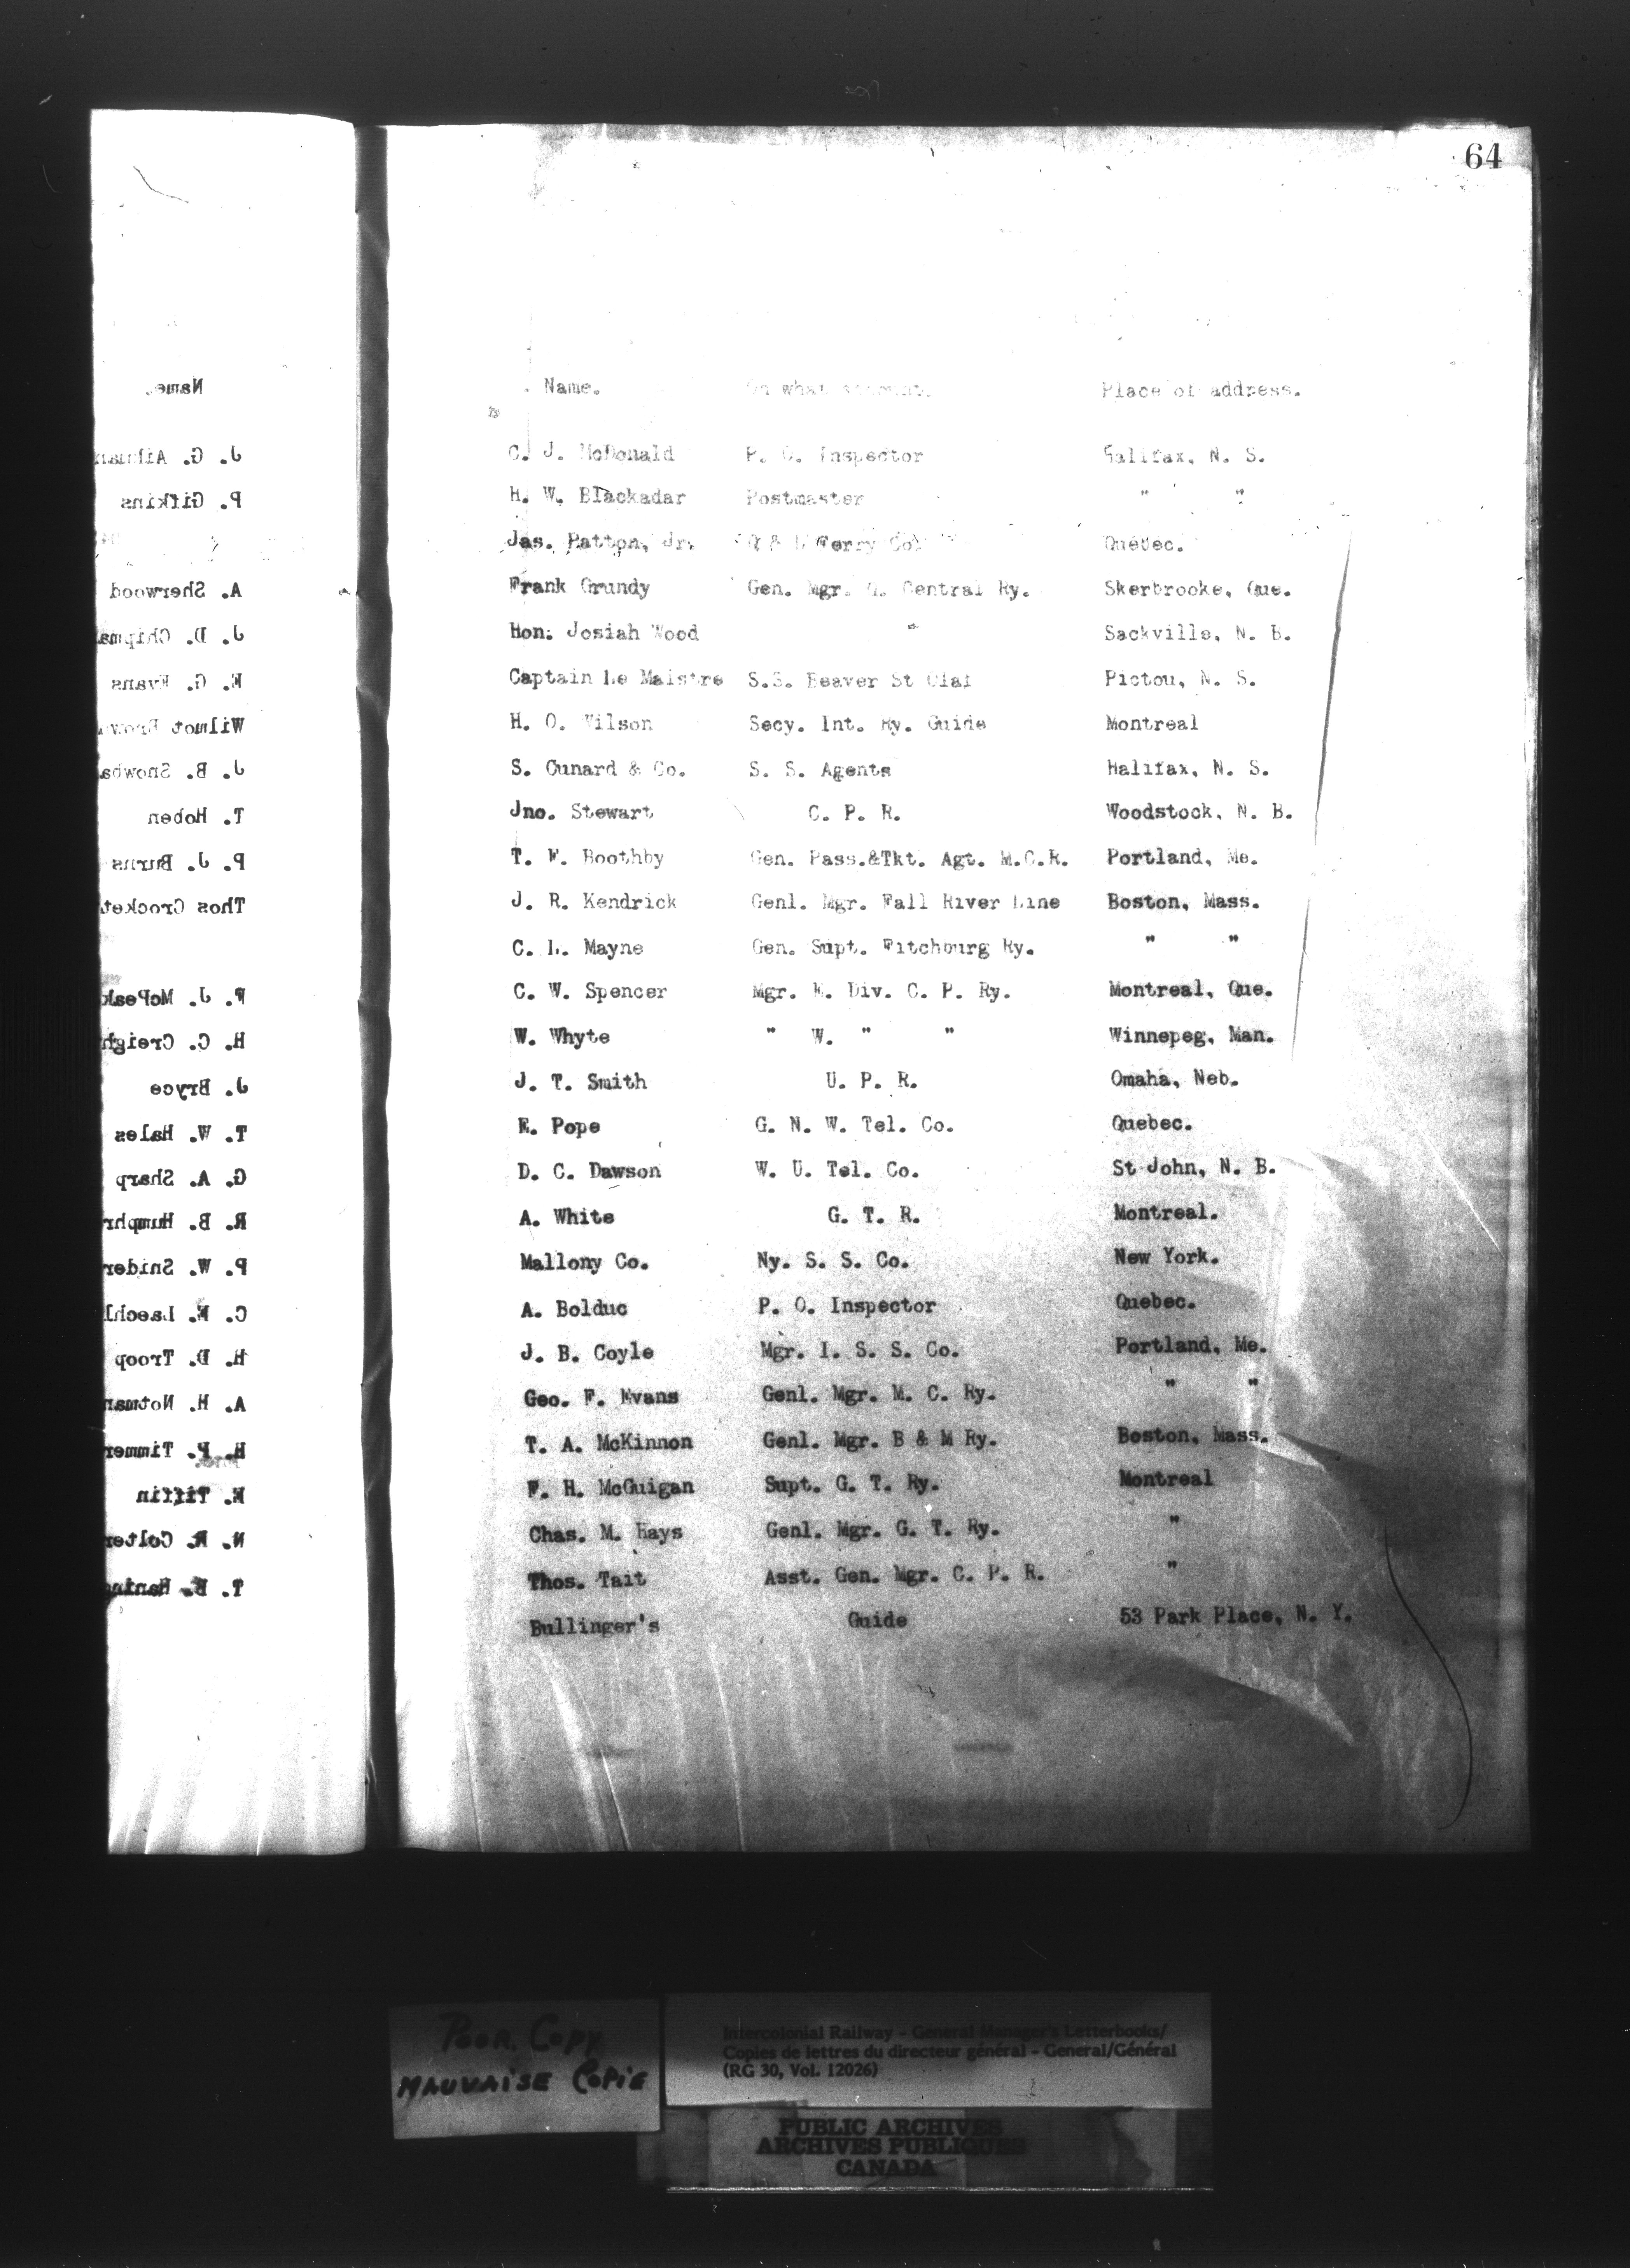 64
Name.
J. G. Ailman
P. Gifkins
A. Sherwood
J. D. Chipma
E. G. Evans
Wilmot Brow
J. B. Snowba
T. Hoben
P. J. Burns
Thos Crocket
F. J. McPeak
H. C. Creigh
J. Bryce
T. W. Hales
G. A. Sharp
R. B. Humphr
P. W. Snider
C. E. Laechl
H. D. Troop
A. H. Notman
H. P. Timmer
E. Tiffin
N. R. Colter
T. E. Haning
Name. On what account. Place of address.
C. J. McDonald P. O. Inspector Halifax, N. S.
H. W. Blackadar Postmaster " "
Jas. Patton, Jr. Q & L Ferry Co. Quebec.
Frank Grundy Gen. Mgr. Q. Central Ry. Skerbrooke, Que.
Hon. Josiah Wood " Sackville, N. B.
Captain Le Maistre S.S. Beaver St Olaf Pictou, N. S.
H. O. Wilson Secy. Int. Ry. Guide Montreal
S. Cunard & Co. S. S. Agents Halifax, N. S.
Jno. Stewart C. P. R. Woodstock, N. B.
T. F. Boothby Gen. Pass.&Tkt. Agt. M.C.R. Portland, Me.
J. R. Kendrick Genl. Mgr. Fall River Line Boston, Mass.
C. L. Mayne Gen. Supt. Fitchburg Ry. " "
C. W. Spencer Mgr. E. Div. C. P. Ry. Montreal, Que.
W. Whyte " W. " " Winnepeg, Man.
J. T. Smith U. P. R. Omaha, Neb.
E. Pope G. N. W. Tel. Co. Quebec.
D. C. Dawson W. U. Tel. Co. St John, N. B.
A. White G. T. R. Montreal.
Mallony Co. Ny. S. S. Co. New York.
A. Bolduc P. O. Inspector Quebec.
J. B. Coyle Mgr. I. S. S. Co. Portland, Me.
Geo. F. Evans Genl. Mgr. M. C. Ry. " "
T. A. McKinnon Genl. Mgr. B & M Ry. Boston, Mass.
F. H. McGuigan Supt. G. T. Ry. Montreal
Chas. M. Hays Genl. Mgr. G. T. Ry. "
Thos. Tait Asst. Gen. Mgr. C. P. R. "
Bullinger's Guide 53 Park Place, N. Y.
Poor Copy
MAUVAISE COPIE
Intercolonial Railway - General Manager's Letterbooks/
Copies de lettres du directeur général - General/Général
(RG 30, Vol. 12026)
PUBLIC ARCHIVES
ARCHIVES PUBLIQUES
CANADA